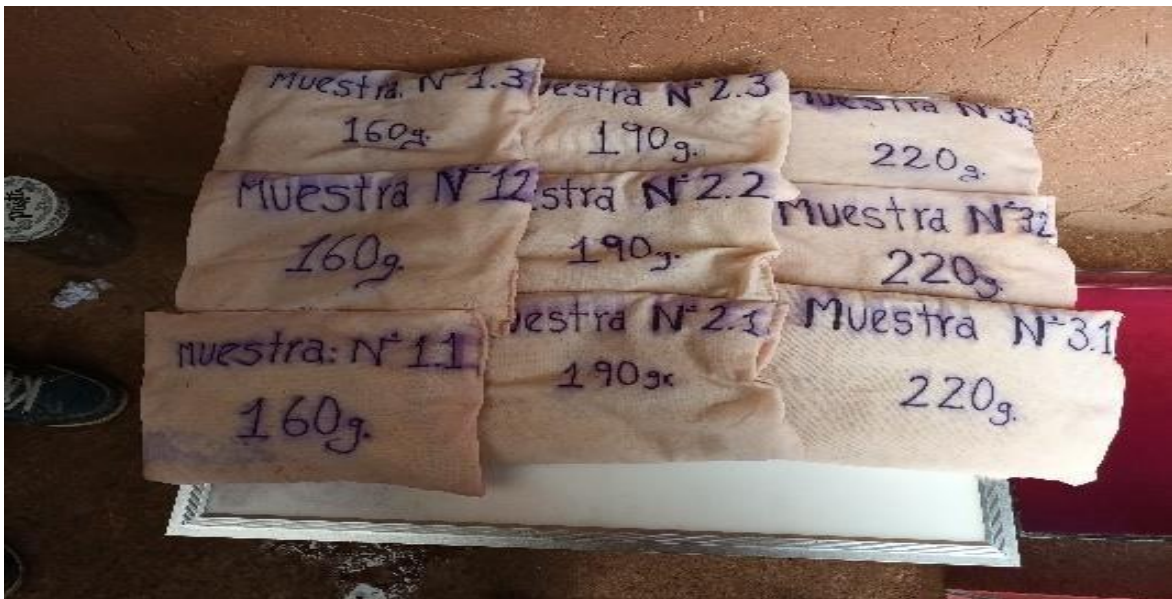 Muestra. N° 1.3
160g.
uestra N° 2.3
190g.
uestra N° 33
220g.
Muestra N° 12
160g.
stra N° 2.2
190g.
Muestra N° 32
220g.
muestra: N° 1.1
160g.
uestra N° 2.1
190gr
Muestra N° 3.1
220g.